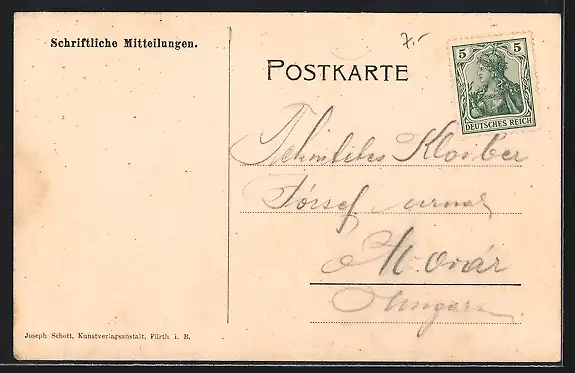 Schriftliche Mitteilungen.
7.-
POSTKARTE
5 5
DEUTSCHES REICH
Kloiber
József urnak
M. óvár
Ungarn.
Joseph Schott, Kunstverlagsanstalt, Fürth i. B.